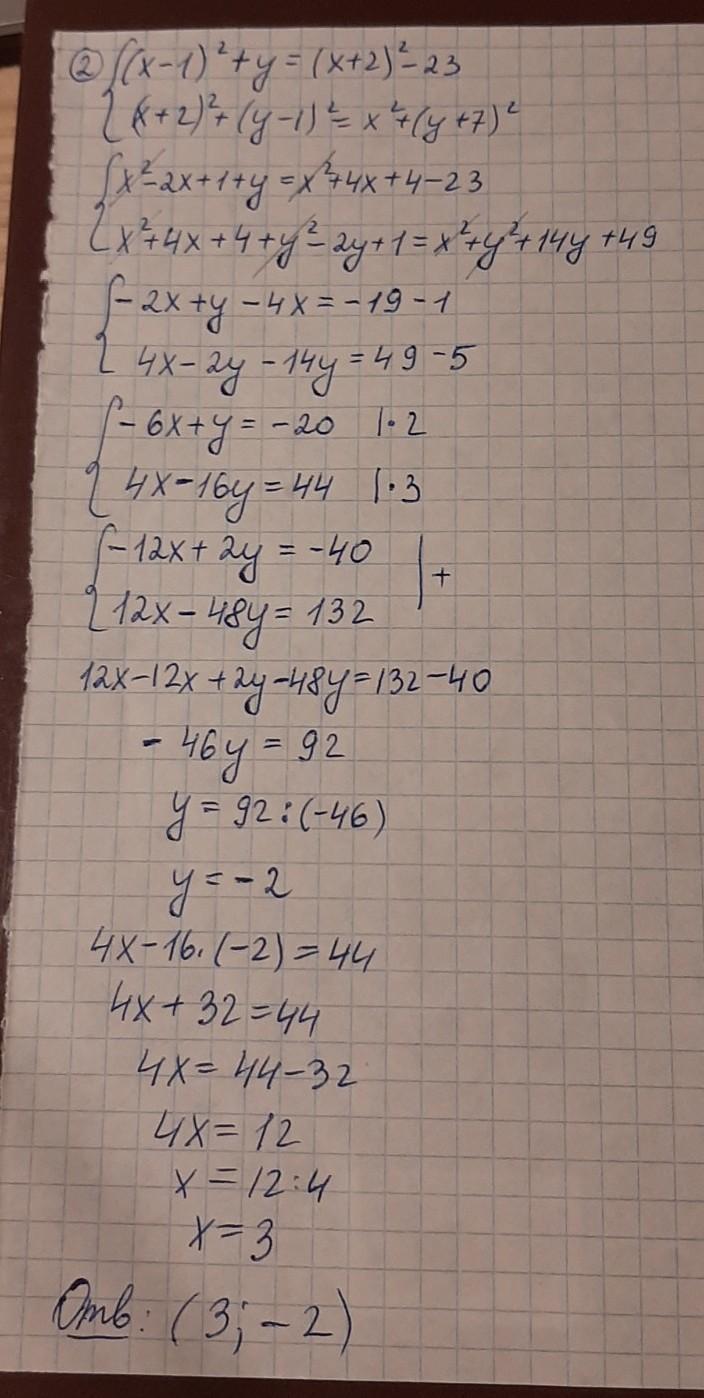 ② {(x-1)²+y=(x+2)²-23
{(x+2)²+(y-1)²=x²+(y+7)²
{x²-2x+1+y=x²+4x+4-23
{x²+4x+4+y²-2y+1=x²+y²+14y+49
{-2x+y-4x=-19-1
{4x-2y-14y=49-5
{-6x+y=-20 |·2
{4x-16y=44 |·3
{-12x+2y=-40 |+
{12x-48y=132
12x-12x+2y-48y=132-40
-46y=92
y=92:(-46)
y=-2
4x-16·(-2)=44
4x+32=44
4x=44-32
4x=12
x=12:4
x=3
Отв: (3;-2)